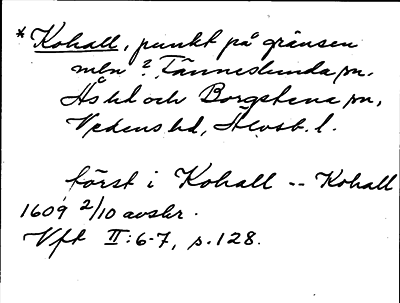 * Kohall, punkt på gränsen
mln ? Tänneslunda sn.
Ås hd och Borgstena sn,
Vedens hd, Älvsb. l.
först i Kohall -- Kohall
1609 2/10 avskr.
Vft II:6-7, s. 128.